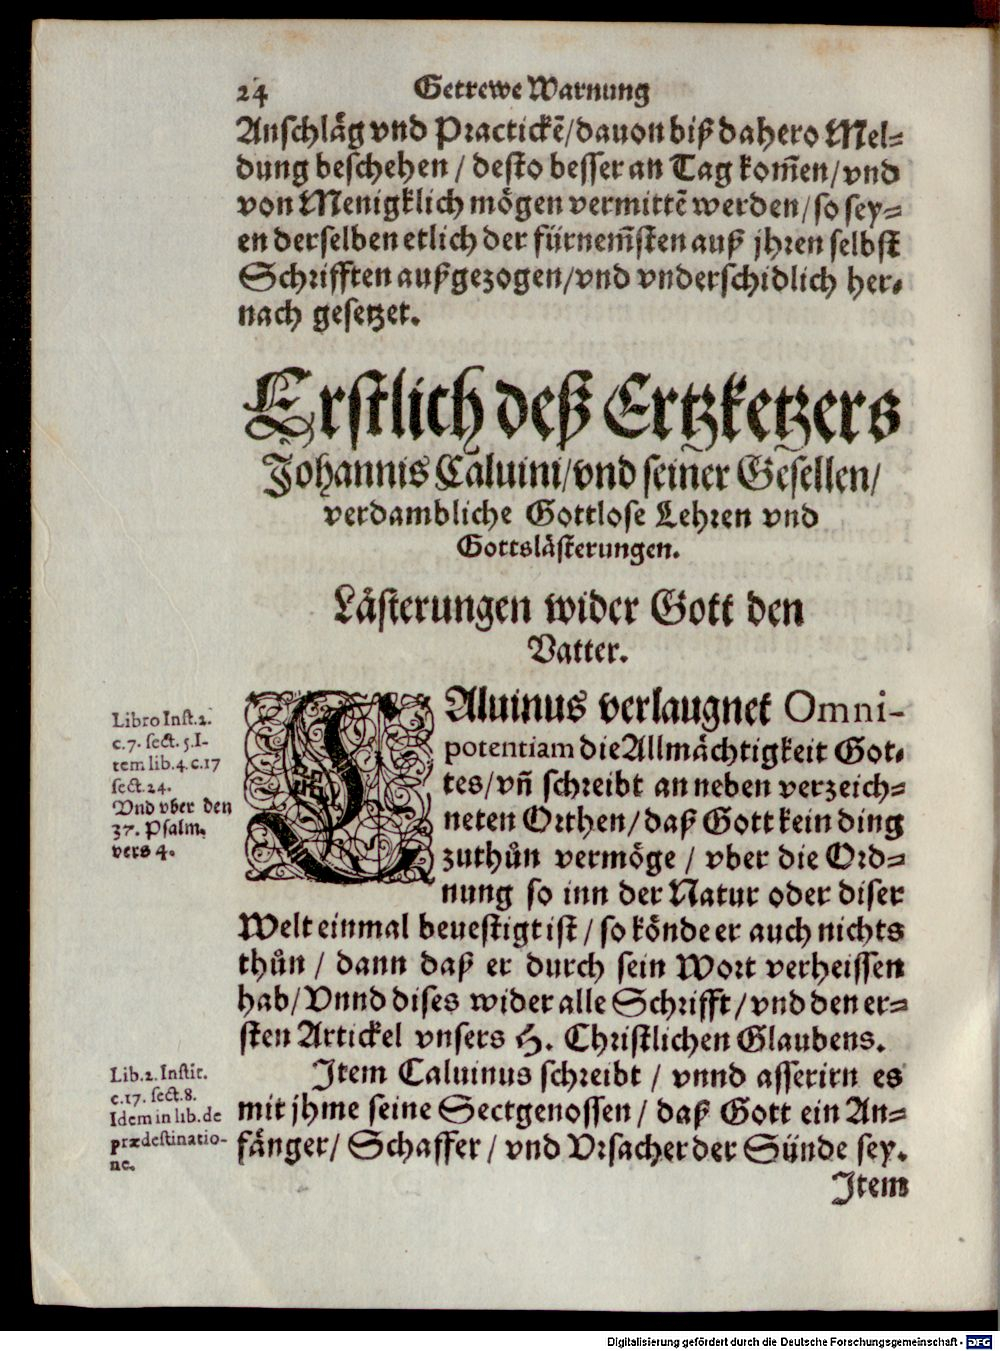 24 Getrewe Warnung
Anschläg vnd Practickẽ/dauon biß dahero Mel=
dung beschehen / desto besser an Tag kom̃en/vnd
von Menigklich mögen vermittẽ werden/so sey=
en derselben etlich der fürnem̃sten auß jhren selbst
Schrifften außgezogen/vnd vnderschidlich her=
nach gesetzet.
Erstlich deß Ertzketzers
Johannis Caluini/vnd seiner Gesellen/
verdambliche Gottlose Lehren vnd
Gottslästerungen.
Lästerungen wider Gott den
Vatter.
Libro Inst.2.
c.7. sect.5.I-
tem lib.4.c.17
sect.24.
Vnd vber den
37. Psalm.
vers 4.
CAluinus verlaugnet Omni-
potentiam die Allmächtigkeit Got=
tes/vñ schreibt an neben verzeich=
neten Orthen/daß Gott kein ding
zuthůn vermöge / vber die Ord=
nung so inn der Natur oder diser
Welt einmal beuestigt ist / so könde er auch nichts
thůn / dann daß er durch sein Wort verheissen
hab/Vnnd dises wider alle Schrifft/vnd den er=
sten Artickel vnsers H. Christlichen Glaubens.
Lib.2. Instit.
c.17. sect.8.
Idem in lib.de
prædestinatio-
ne.
Item Caluinus schreibt / vnnd asserirn es
mit jhme seine Sectgenossen / daß Gott ein An=
fänger/ Schaffer / vnd Vrsacher der Sünde sey.
Item
Digitalisierung gefördert durch die Deutsche Forschungsgemeinschaft - DFG